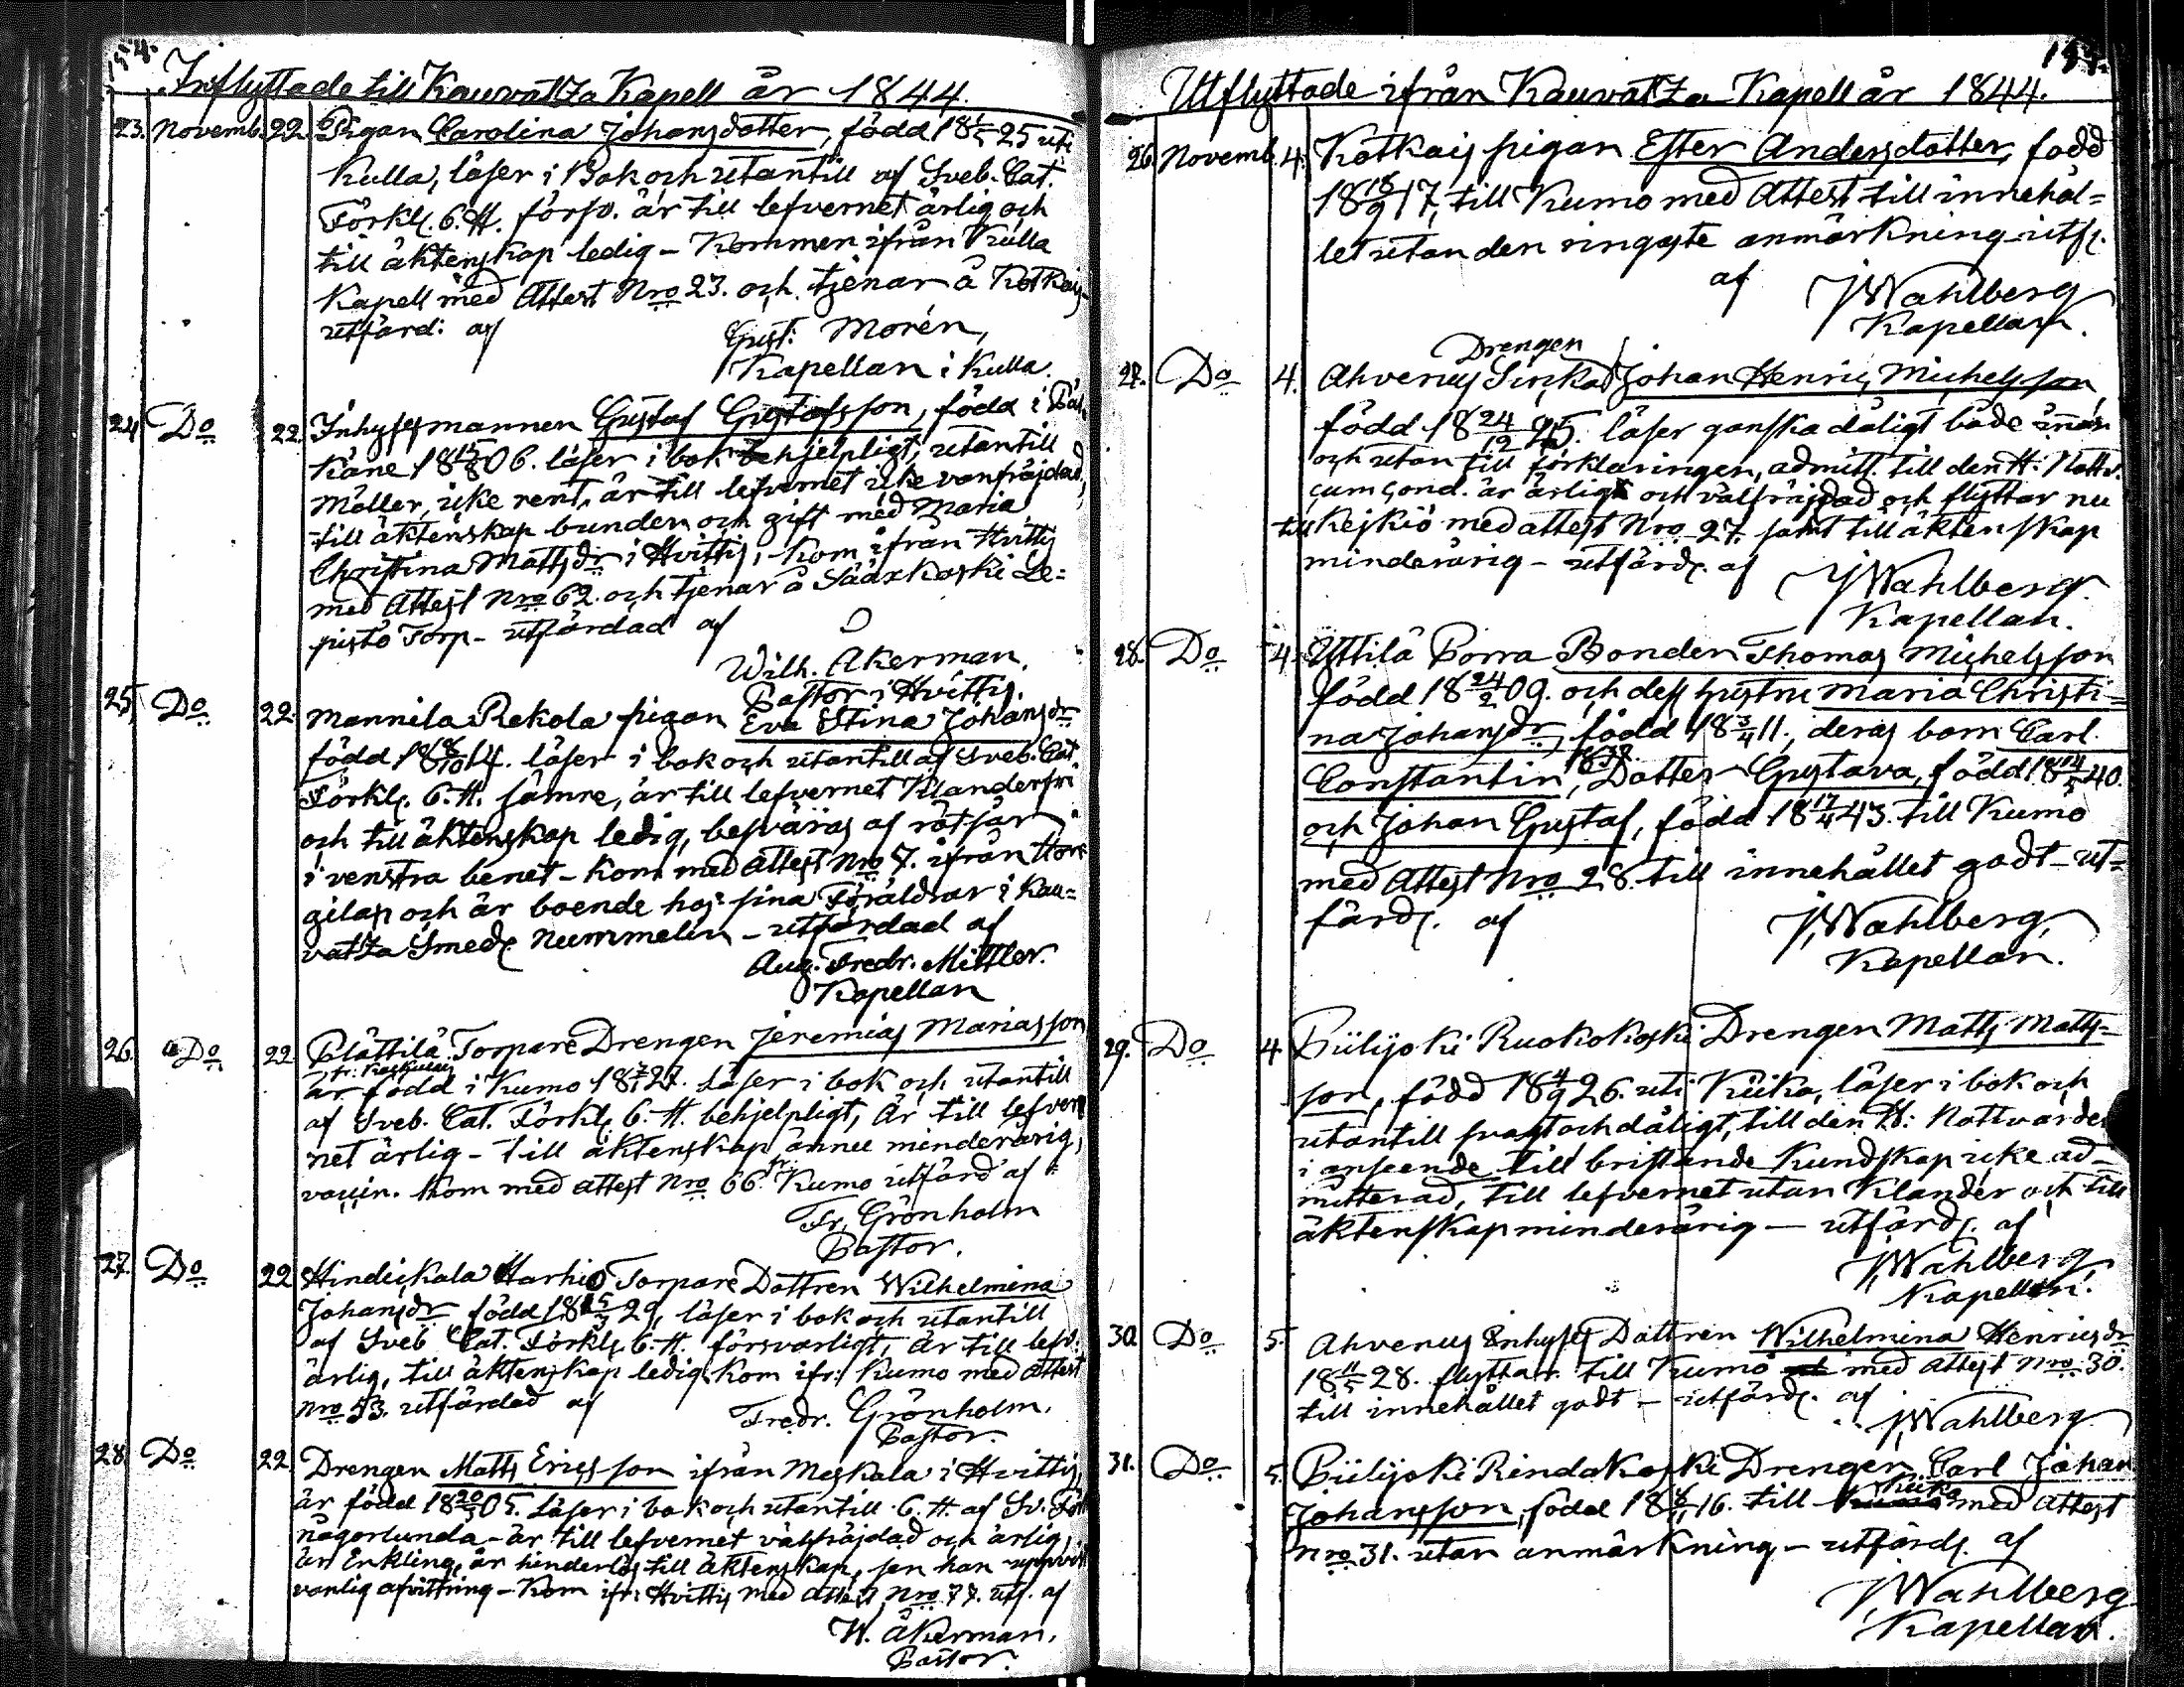 154.
Inflyttade till Kauvatza Kapell år 1844.
23. Novemb. 22. Pigan Carolina Johansdotter, född 18 1/5 25 uti
Kulla, läser i Bok och utantill af Sveb. Cat.
Förkl. 6. H. försv. är till lefvernet ärlig och
till äktenskap ledig – Kommen ifrån Kulla
Kapell med Attest Nro 23. och tjenar å Kotkais
utfärd: af Gust: Morén,
Kapellan i Kulla.
24. Do 22. Inhysesmannen Gustaf Gustafsson, född i
Kåne 18 15/8 06. läser i bok behjelpligt, utantill
Möller, icke rent, är till lefvernet icke vanfräjdad,
till äktenskap bunden och gift med Maria
Christina Mattsdr i Hvittis, – kom ifrån Hvittis
med Attest Nro 62. och tjenar å Sääxkoski Le=
pistö Torp – utfärdad af
Wilh. Åkerman,
Pastor i Hvittis.
25. Do 22. Mannila Rekola pigan Eva Stina Johansdr
född 18 8/10 14. läser i bok och utantill af Sveb. Cat.
Förkl. 6. H. sämre, är till lefvernet Klanderfri
och till äktenskap ledig, besväras af rötsår
i venstra benet – Kom med attest Nro 7. ifrån Hon=
gilax och är boende hos sina Föräldrar i Kau=
vatza Smed Nummelin – utfärdad af
Aug. Fredr. Mittler.
Kapellan
26. Do 22. Plättilä Torpare Drengen Jeremias Mariasson
är född i Kumo 18 7/1 27. Läser i bok och utantill
af Sveb. Cat. Förkl. 6. H. behjelpligt, Är till lefver
net ärlig – till äktenskap ännu minderårig,
vaccin. Kom med attest Nro 66. fr: Kumo utfärd af
Fr. Grönholm
Pastor.
27. Do 22 Hindickala Harhio Torpare Dottren Wilhelmina
Johansdr född 18 25/3 29, läser i bok och utantill
af Sveb Cat. Förkl. 6. H. försvarligt, Är till lefv.
ärlig, till äktenskap ledig. Kom ifr: Kumo med attest
Nro 53. utfärdad af Fredr. Grönholm.
Pastor.
28. Do 22. Drengen Matts Ericsson ifrån Meskala i Hvittis,
är född 18 20/3 05. Läser i bok och utantill 6. H. af Sv. För
någorlunda – är till lefvernet välfräjdad och ärlig,
än Enkling, är hinderlös till äktenskap, sen han uppvist
vanlig afvittring – Kom ifr: Hvittis med attest Nro 77. utf. af
W. Åkerman,
Pastor.
155.
Utflyttade ifrån Kauvatza Kapell år 1844.
26. Novemb. 4. Kotkais pigan Ester Andersdotter, född
18 18/9 17, till Kumo med Attest till innehål=
let utan den ringaste anmärkning – utf.
af J Wahlberg
Kapellan.
Drengen
27. Do 4. Ahvenus Sirka Johan Henric Michelsson
född 18 24/12 25. läser ganska dåligt både innan
och utan till förklaringen, admitt. till den H. Nattv.
cum cond. är ärlig och välfräjdad och flyttar nu
till Keikiö med attest Nro 27. samt till äktenskap
minderårig – utfärd. af
J Wahlberg.
Kapellan.
28. Do 4. Uttila Porra Bonden Thomas Michelsson
född 18 24/2 09. och dess hustru Maria Christi=
na Johansdr född 18 3/4 11., deras barn Carl
Constantin, Dotter Gustava, född 18 14/5 40.
och Johan Gustaf, född 18 17/4 43. till Kumo
med Attest Nro 28. till innehållet godt – ut=
färd. af J. Wahlberg,
Kapellan.
29. Do 4. Piilijoki Ruokokoski Drengen Matts Matts=
son, född 18 4/9 26. uti Kiika, läser i bok och
utantill svagt och dåligt, till den H: Nattvarden
i anseende till bristande Kundskap icke ad=
mitterad, till lefvernet utan Klander och till
äktenskap minderårig – utfärd. af
J. Wahlberg,
Kapellan.
30. Do 5. Ahvenus Inhyses Dottren Wilhelmina Henricsdr
18 11/5 28. flyttar till Kumo med Attest Nro 30.
till innehållet godt – utfärd. af
J. Wahlberg
31. Do 5. Piilijoki Rindakoski Drengen Carl Johan
Kiika
Johansson, född 18 6/1 16. till med Attest
Nro 31. utan anmärkning – utfärd. af
J. Wahlberg
Kapellan.